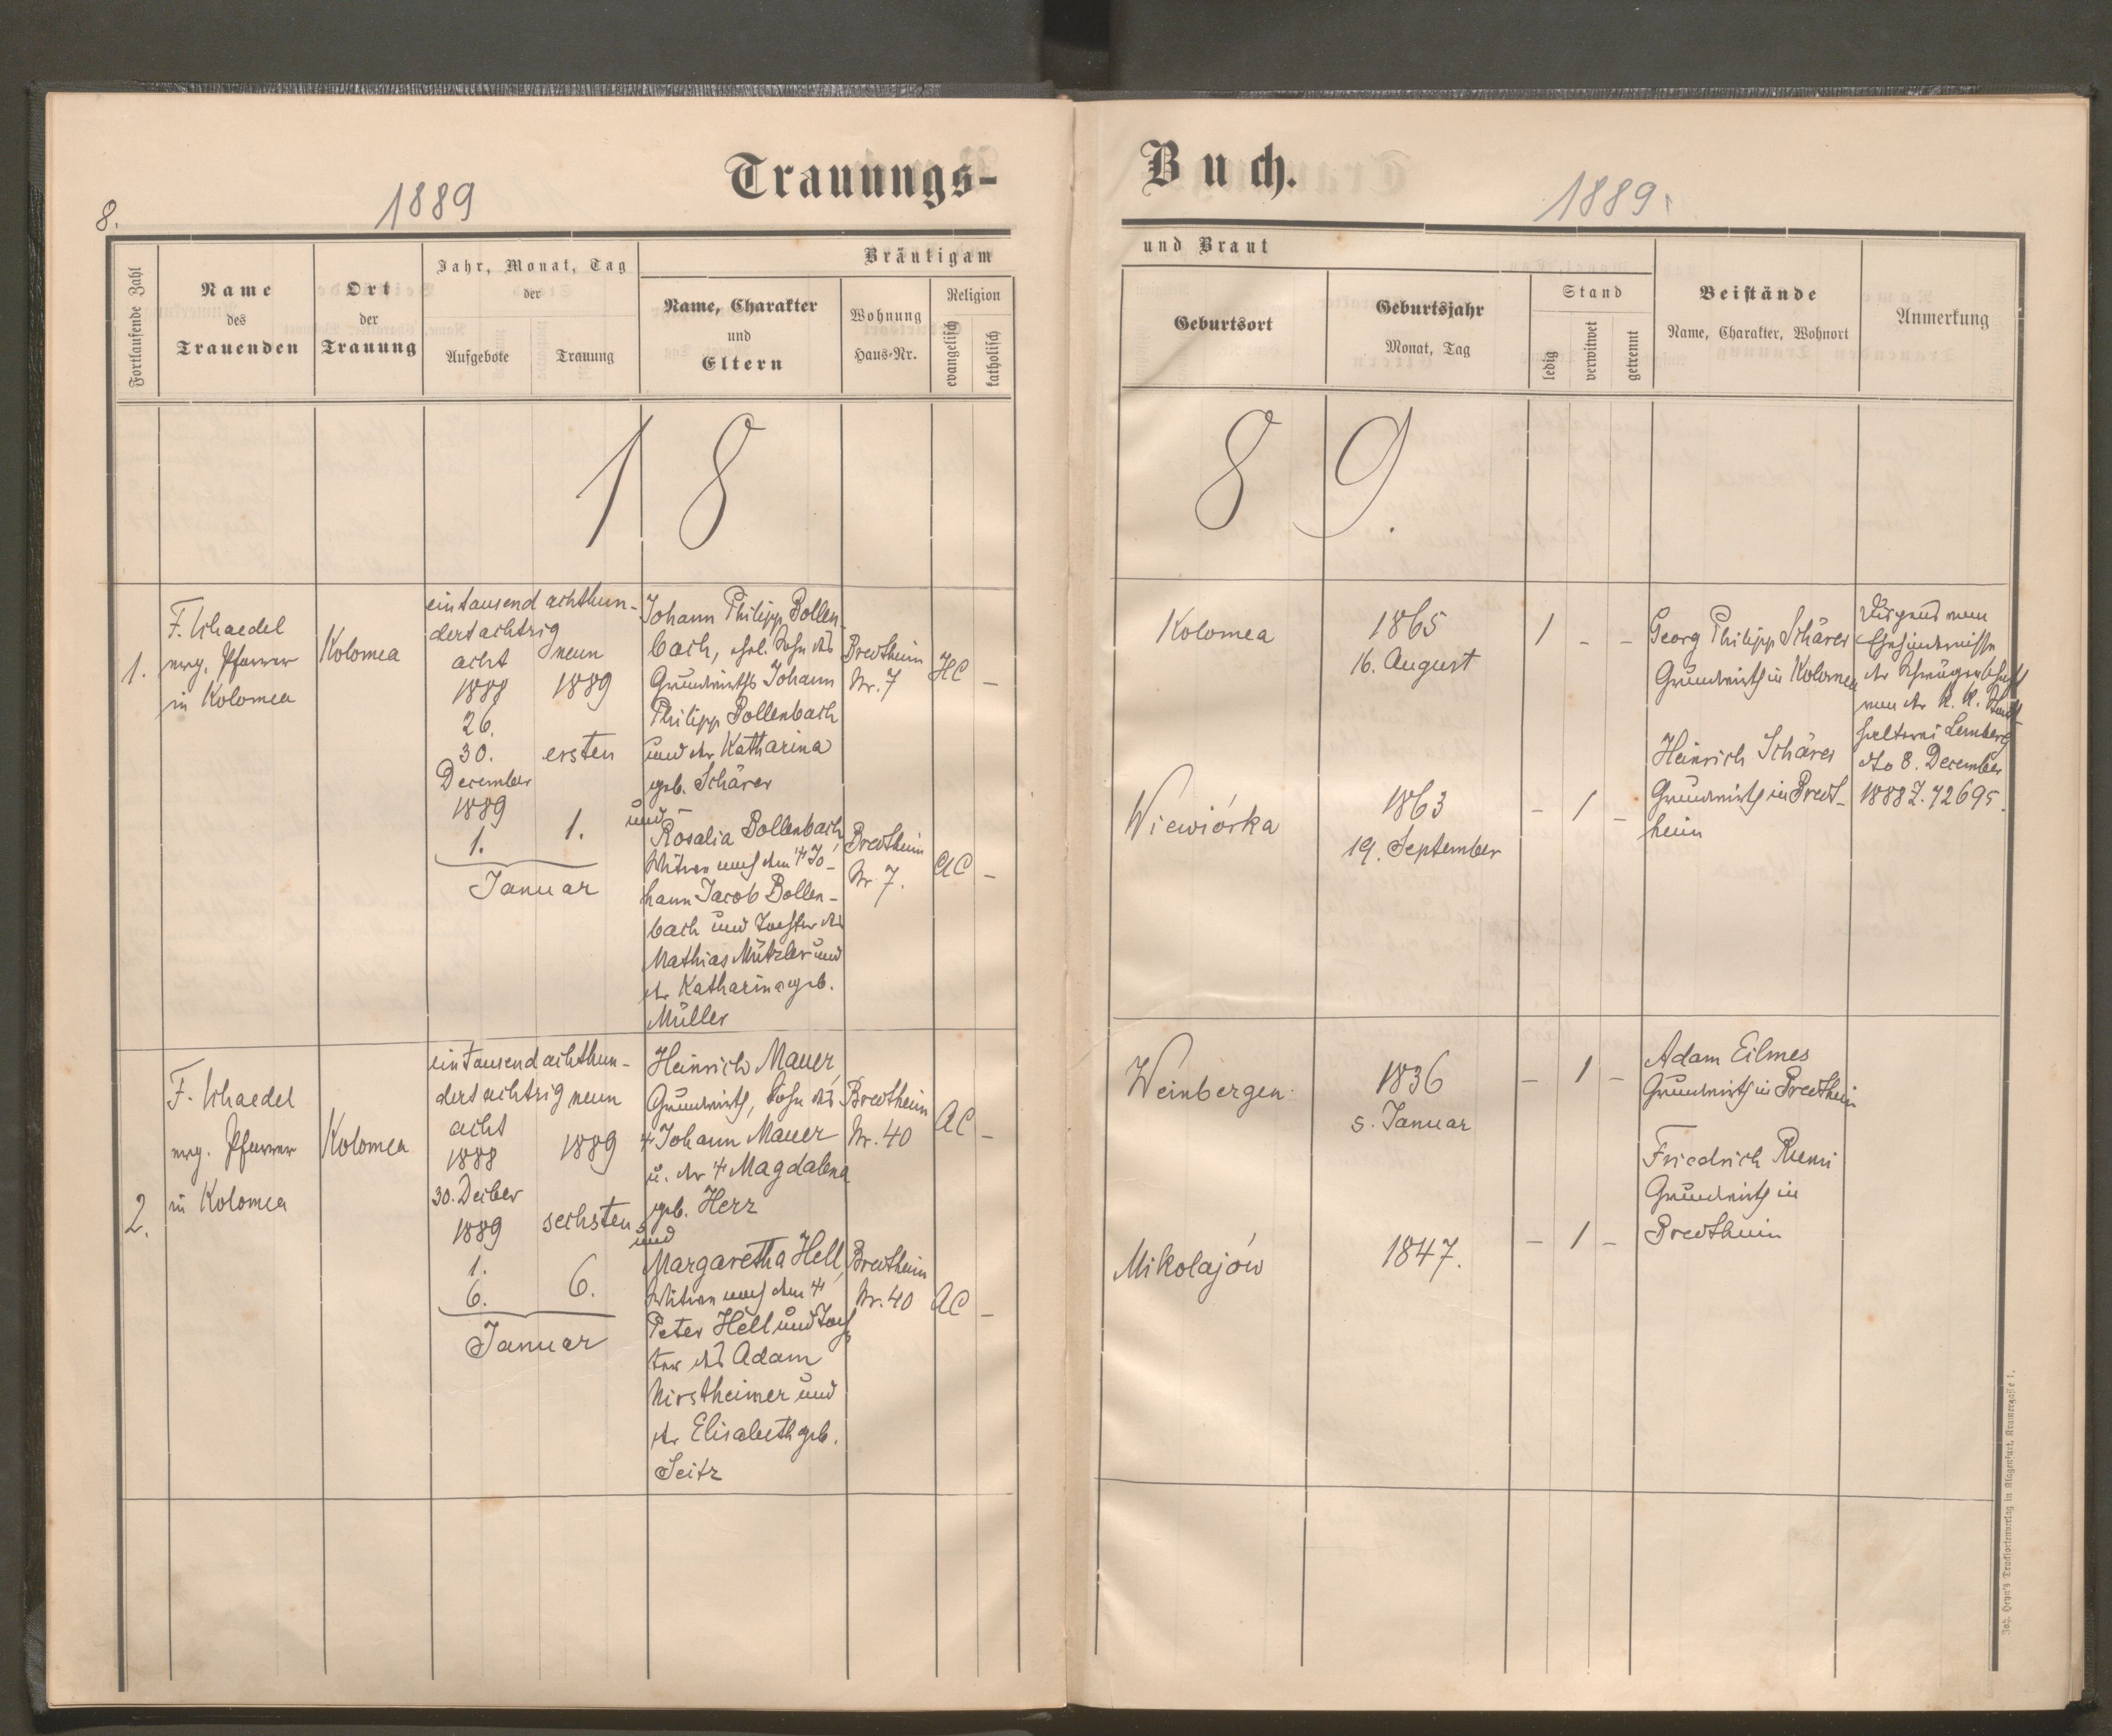 Trauungs-
Buch.
8.
1889
1889.
Fortlaufende Zahl
Name
des
Trauenden
Ort
der
Trauung
Jahr, Monat, Tag
der
Aufgebote
Trauung
Bräutigam
Name, Charakter
und
Eltern
Wohnung
Haus-Nr.
Religion
evangelisch
katholisch
und Braut
Geburtsort
Geburtsjahr
Monat, Tag
Stand
ledig
verwitwet
getrennt
Beistände
Name, Charakter, Wohnort
Anmerkung
18
89.
1.
F. Schaedel
evg. Pfarrer
in Kolomea
Kolomea
eintausend achthun-
dertachtzig
acht neun
1888 1889
26.
30. ersten
December
1889
1. 1.
Januar
Johann Philipp Bollen-
bach, ehel. Sohn des
Grundwirths Johann
Philipp Bollenbach
und der Katharina
geb. Schärer
und
Rosalia Bollenbach,
Witwe nach dem † Jo-
hann Jacob Bollen-
bach und Tochter des
Mathias Mützler und
der Katharina geb.
Müller
Bredtheim
Nr. 7
HC
-
Bredtheim
Nr. 7.
AC
-
Kolomea
1865
16. August
1 - -
Wiewiórka
1863
19. September
- 1 -
Georg Philipp Schärer
Grundwirth in Kolomea
Heinrich Schärer
Grundwirth in Bredt-
heim
Dispens vom
Ehehindernisse
der Schwägerschaft
von der k. k. Statt-
halterei Lemberg
dto 8. December
1888 Z. 72695.
2.
F. Schaedel
evg. Pfarrer
in Kolomea
Kolomea
eintausend achthun-
dertachtzig neun
acht
1888 1889
30. Decber
1889 sechsten
1.
6. 6.
Januar
Heinrich Mauer,
Grundwirth, Sohn des
† Johann Mauer
u. der † Magdalena
geb. Herz
und
Margaretha Hell,
Witwe nach dem †
Peter Hell und Toch-
ter des Adam
Kirstheimer und
der Elisabeth geb.
Seitz
Bredtheim
Nr. 40
AC
-
Bredtheim
Nr. 40
AC
-
Weinbergen
1836
5. Januar
- 1 -
Mikolajów
1847.
- 1 -
Adam Eilmes
Grundwirth in Bredtheim
Friedrich
Grundwirth in
Bredtheim
Joh. Heyn's Drucksortenverlag in Klagenfurt, Kramergasse 1.